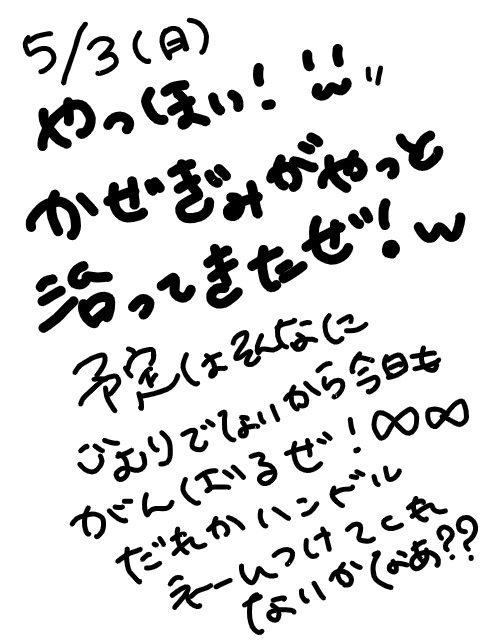 5/3(日)
やっほい! ¨w〃
かぜぎみがやっと
治ってきたぜ!w
予定はそんなに
びむりでないから今日も
がんばるぜ!∞∞
だれかハンドル
ネームつけてくれ
ないかなぁ??